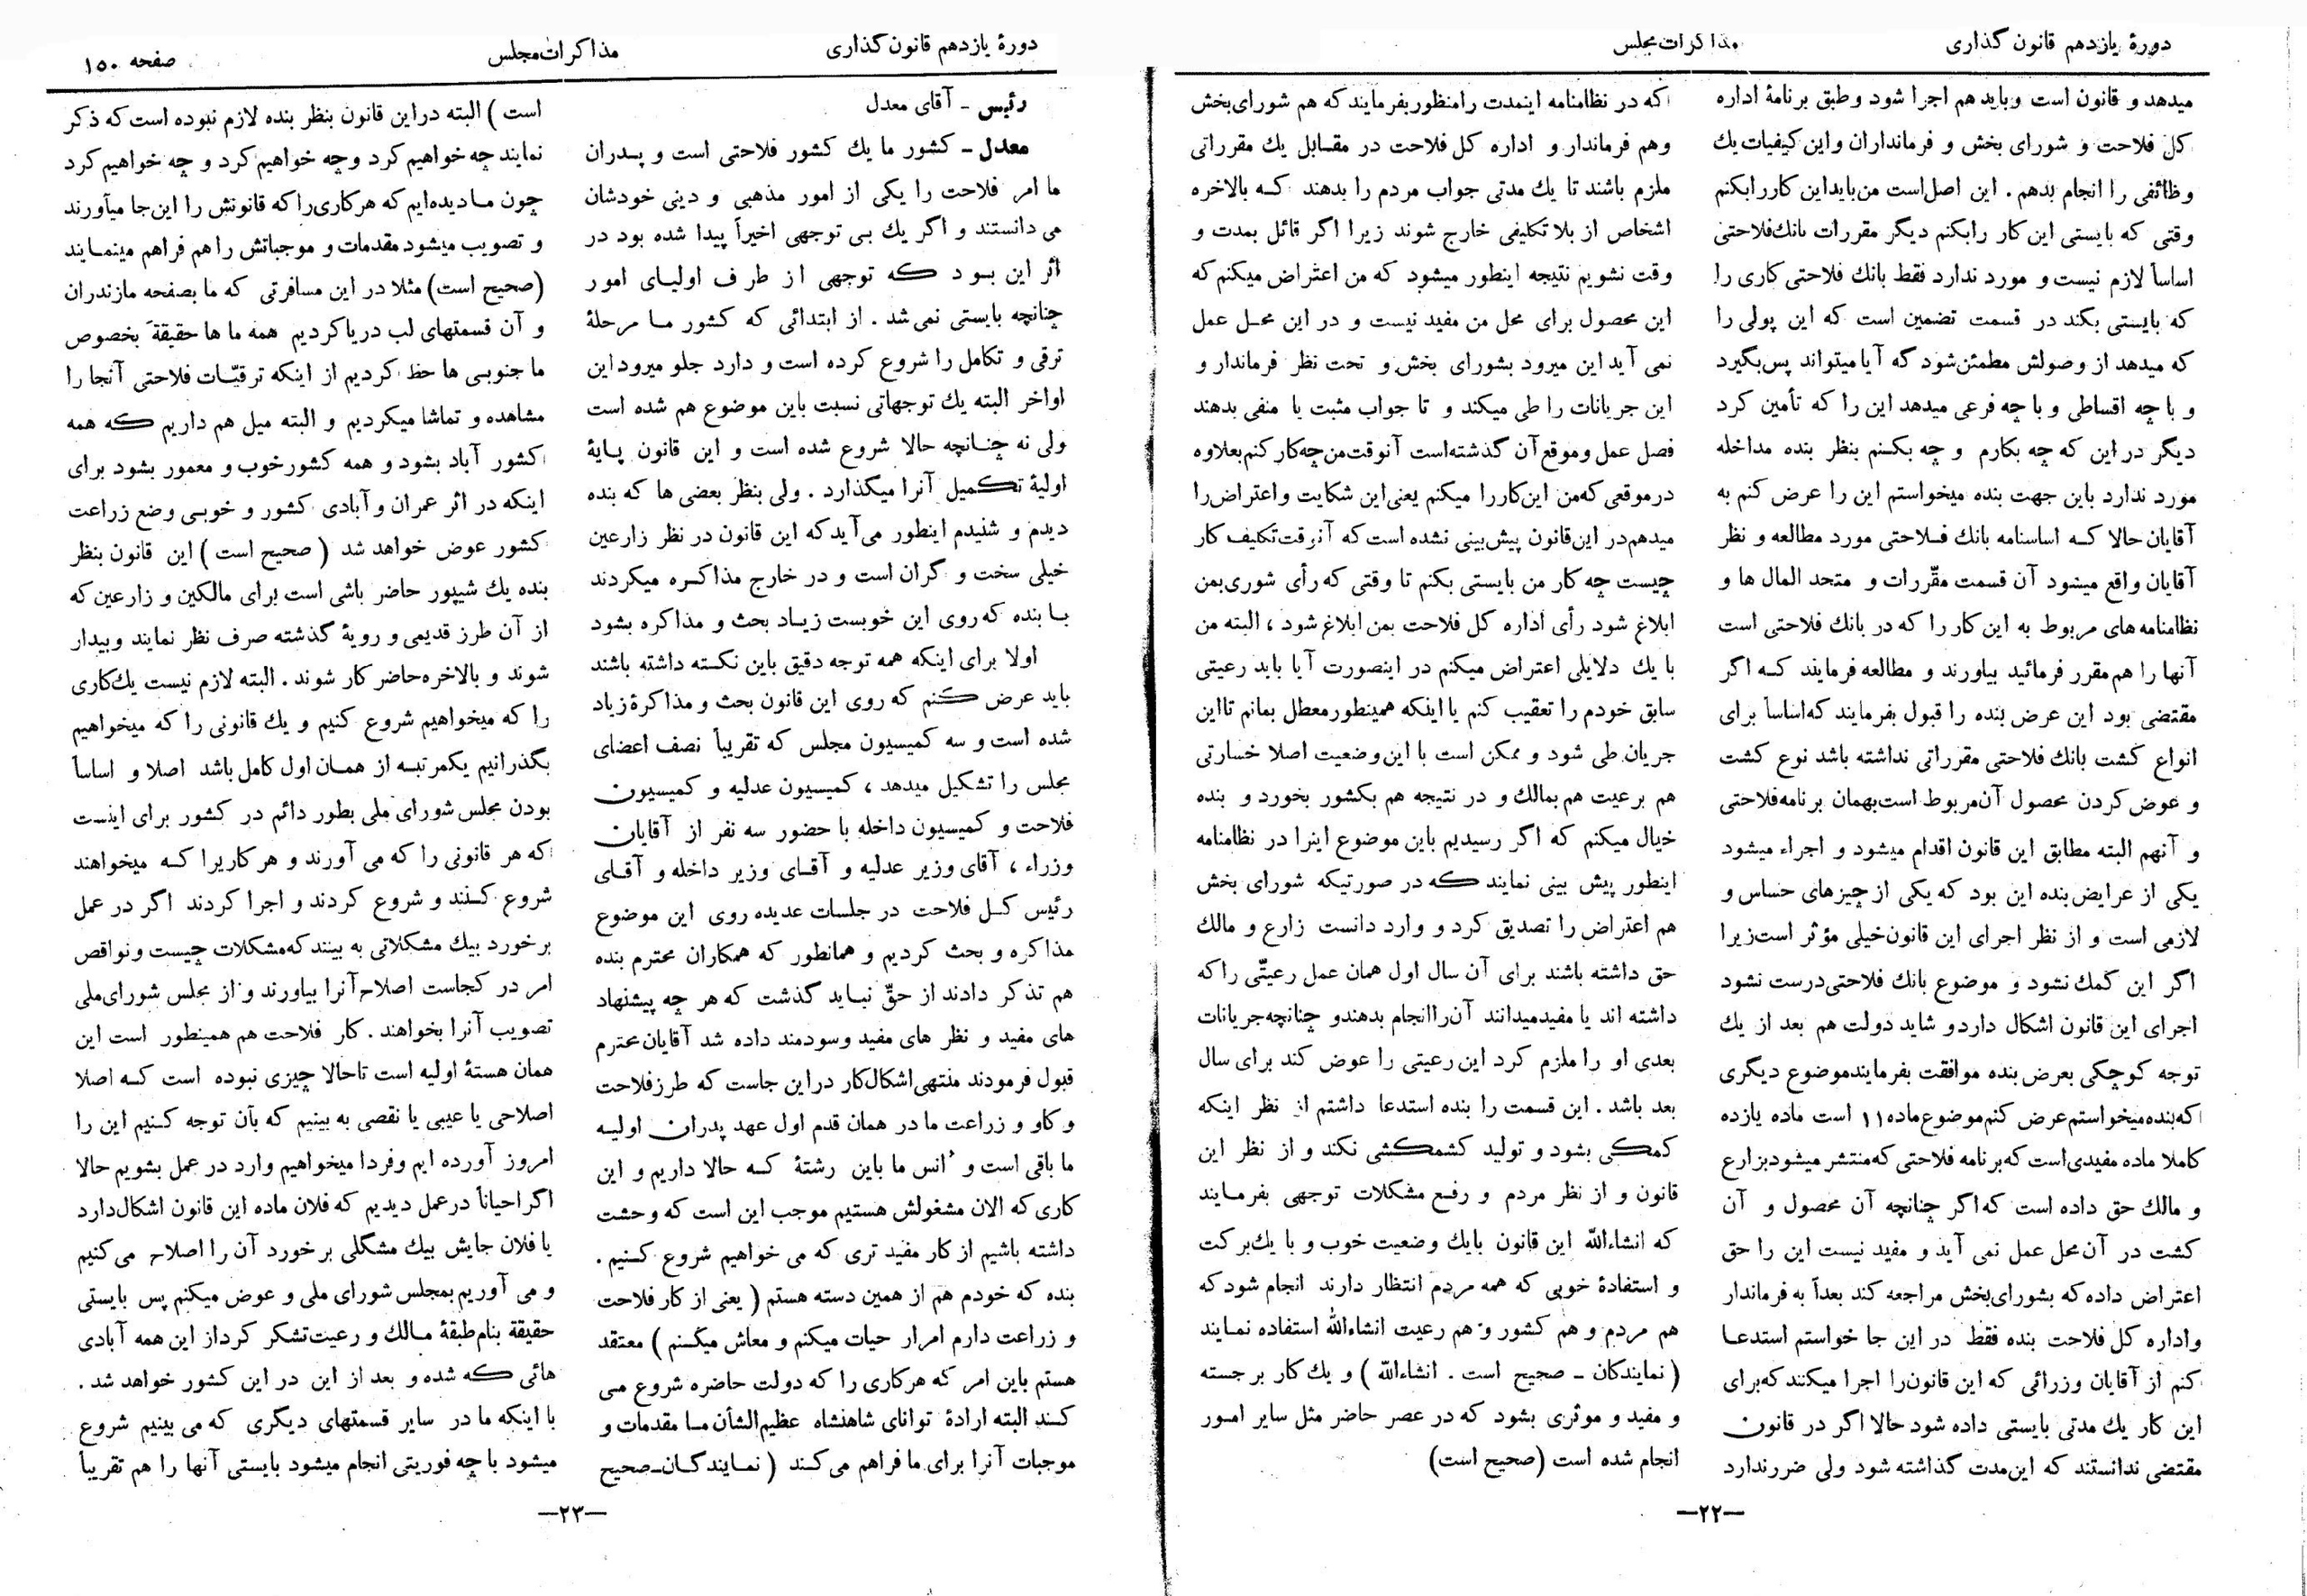 دورهٔ یازدهم قانون گذاری
مذاکرات مجلس
میدهد و قانون است و باید هم اجرا شود و طبق برنامهٔ اداره
کل فلاحت و شورای بخش و فرمانداران و این کیفیات یك
وظائفی را انجام بدهم . این اصل است من باید این کار را بکنم
وقتی که بایستی این کار را بکنم دیگر مقررات بانك فلاحتی
اساساً لازم نیست و مورد ندارد فقط بانك فلاحتی کاری را
که بایستی بکند در قسمت تضمین است که این پولی را
که میدهد از وصولش مطمئن شود که آیا میتواند پس بگیرد
و با چه اقساطی و با چه فرعی میدهد این را که تأمین کرد
دیگر در این که چه بکارم و چه بکنم بنظر بنده مداخله
مورد ندارد باین جهت بنده میخواستم این را عرض کنم به
آقایان حالا که اساسنامه بانك فلاحتی مورد مطالعه و نظر
آقایان واقع میشود آن قسمت مقررات و متحد المال ها و
نظامنامه های مربوط به این کار را که در بانك فلاحتی است
آنها را هم مقرر فرمائید بیاورند و مطالعه فرمایند که اگر
مقتضی بود این عرض بنده را قبول بفرمایند که اساساً برای
انواع کشت بانك فلاحتی مقرراتی نداشته باشد نوع کشت
و عوض کردن محصول آن مربوط است بهمان برنامه فلاحتی
و آنهم البته مطابق این قانون اقدام میشود و اجراء میشود
یکی از عرایض بنده این بود که یکی از چیزهای حساس و
لازمی است و از نظر اجرای این قانون خیلی مؤثر است زیرا
اگر این کمك نشود و موضوع بانك فلاحتی درست نشود
اجرای این قانون اشکال دارد و شاید دولت هم بعد از یك
توجه کوچکی بعرض بنده موافقت بفرمایند موضوع دیگری
که بنده میخواستم عرض کنم موضوع ماده ۱۱ است ماده یازده
کاملا ماده مفیدی است که برنامه فلاحتی که منتشر میشود بزارع
و مالك حق داده است که اگر چنانچه آن محصول و آن
کشت در آن محل عمل نمی آید و مفید نیست این را حق
اعتراض داده که بشورای بخش مراجعه کند بعداً به فرماندار
و اداره کل فلاحت بنده فقط در این جا خواستم استدعا
کنم از آقایان وزرائی که این قانون را اجرا میکنند که برای
این کار یك مدتی بایستی داده شود حالا اگر در قانون
مقتضی ندانستند که این مدت گذاشته شود ولی ضرر ندارد
که در نظامنامه این مدت را منظور بفرمایند که هم شورای بخش
وهم فرماندار و اداره کل فلاحت در مقابل یك مقرراتی
ملزم باشند تا یك مدتی جواب مردم را بدهند که بالاخره
اشخاص از بلا تکلیفی خارج شوند زیرا اگر قائل بمدت و
وقت نشویم نتیجه اینطور میشود که من اعتراض میکنم که
این محصول برای محل من مفید نیست و در این محل عمل
نمی آید این میرود بشورای بخش و تحت نظر فرماندار و
این جریانات را طی میکند و تا جواب مثبت یا منفی بدهند
فصل عمل و موقع آن گذشته است آنوقت من چه کار کنم بعلاوه
در موقعی که من این کار را میکنم یعنی این شکایت و اعتراض را
میدهم در این قانون پیش بینی نشده است که آنوقت تکلیف کار
چیست چه کار من بایستی بکنم تا وقتی که رأی شوری بمن
ابلاغ شود رأی اداره کل فلاحت بمن ابلاغ شود ، البته من
با یك دلایلی اعتراض میکنم در اینصورت آیا باید رعیتی
سابق خودم را تعقیب کنم یا اینکه همینطور معطل بمانم تا این
جریان طی شود و ممکن است با این وضعیت اصلا خسارتی
هم برعیت هم بمالك و در نتیجه هم بکشور بخورد و بنده
خیال میکنم که اگر رسیدیم باین موضوع اینرا در نظامنامه
اینطور پیش بینی نمایند که در صورتیکه شورای بخش
هم اعتراض را تصدیق کرد و وارد دانست زارع و مالك
حق داشته باشند برای آن سال اول همان عمل رعیتی را که
داشته اند یا مفید میدانند آن را انجام بدهند و چنانچه جریانات
بعدی او را ملزم کرد این رعیتی را عوض کند برای سال
بعد باشد . این قسمت را بنده استدعا داشتم از نظر اینکه
کمکی بشود و تولید کشمکشی نکند و از نظر این
قانون و از نظر مردم و رفع مشکلات توجهی بفرمایند
که انشاءالله این قانون بایك وضعیت خوب و با یك برکت
و استفادهٔ خوبی که همه مردم انتظار دارند انجام شود که
هم مردم و هم کشور و هم رعیت انشاءالله استفاده نمایند
( نمایندگان ـ صحیح است . انشاءالله ) و یك کار برجسته
و مفید و موثری بشود که در عصر حاضر مثل سایر امور
انجام شده است (صحیح است)
—۲۲—
دورهٔ یازدهم قانون گذاری
مذاکرات مجلس
صفحه ۱۵۰
رئیس ـ آقای معدل
معدل ـ کشور ما یك کشور فلاحتی است و پدران
ما امر فلاحت را یکی از امور مذهبی و دینی خودشان
می دانستند و اگر یك بی توجهی اخیراً پیدا شده بود در
اثر این بود که توجهی از طرف اولیای امور
چنانچه بایستی نمی شد . از ابتدائی که کشور ما مرحلهٔ
ترقی و تکامل را شروع کرده است و دارد جلو میرود این
اواخر البته یك توجهاتی نسبت باین موضوع هم شده است
ولی نه چنانچه حالا شروع شده است و این قانون پایهٔ
اولیهٔ تکمیل آنرا میگذارد . ولی بنظر بعضی ها که بنده
دیدم و شنیدم اینطور می آید که این قانون در نظر زارعین
خیلی سخت و گران است و در خارج مذاکره میکردند
با بنده که روی این خوبست زیاد بحث و مذاکره بشود
اولا برای اینکه همه توجه دقیق باین نکته داشته باشند
باید عرض کنم که روی این قانون بحث و مذاکرهٔ زیاد
شده است و سه کمیسیون مجلس که تقریباً نصف اعضای
مجلس را تشکیل میدهد ، کمیسیون عدلیه و کمیسیون
فلاحت و کمیسیون داخله با حضور سه نفر از آقایان
وزراء ، آقای وزیر عدلیه و آقای وزیر داخله و آقای
رئیس کل فلاحت در جلسات عدیده روی این موضوع
مذاکره و بحث کردیم و همانطور که همکاران محترم بنده
هم تذکر دادند از حق نباید گذشت که هر چه پیشنهاد
های مفید و نظر های مفید و سودمند داده شد آقایان محترم
قبول فرمودند منتهی اشکال کار در این جاست که طرز فلاحت
و کاو و زراعت ما در همان قدم اول عهد پدران اولیه
ما باقی است و اُنس ما باین رشتهٔ که حالا داریم و این
کاری که الان مشغولش هستیم موجب این است که وحشت
داشته باشیم از کار مفید تری که می خواهیم شروع کنیم .
بنده که خودم هم از همین دسته هستم ( یعنی از کار فلاحت
و زراعت دارم امرار حیات میکنم و معاش میکنم ) معتقد
هستم باین امر که هرکاری را که دولت حاضره شروع می
کند البته ارادهٔ توانای شاهنشاه عظیم الشأن ما مقدمات و
موجبات آنرا برای ما فراهم می کند ( نمایندگان ـ صحیح
است ) البته در این قانون بنظر بنده لازم نبوده است که ذکر
نمایند چه خواهیم کرد و چه خواهیم کرد و چه خواهیم کرد
چون ما دیده ایم که هر کاری را که قانونش را این جا میآورند
و تصویب میشود مقدمات و موجباتش را هم فراهم مینمایند
(صحیح است) مثلا در این مسافرتی که ما بصفحه مازندران
و آن قسمتهای لب دریا کردیم همه ما ها حقیقةً بخصوص
ما جنوبی ها حظ کردیم از اینکه ترقیات فلاحتی آنجا را
مشاهده و تماشا میکردیم و البته میل هم داریم که همه
کشور آباد بشود و همه کشور خوب و معمور بشود برای
اینکه در اثر عمران و آبادی کشور و خوبی وضع زراعت
کشور عوض خواهد شد ( صحیح است ) این قانون بنظر
بنده یك شیپور حاضر باشی است برای مالکین و زارعین که
از آن طرز قدیمی و رویهٔ گذشته صرف نظر نمایند و بیدار
شوند و بالاخره حاضر کار شوند . البته لازم نیست یك کاری
را که میخواهیم شروع کنیم و یك قانونی را که میخواهیم
بگذرانیم یکمرتبه از همان اول کامل باشد اصلا و اساساً
بودن مجلس شورای ملی بطور دائم در کشور برای اینست
که هر قانونی را که می آورند و هر کاریرا که میخواهند
شروع کنند و شروع کردند و اجرا کردند اگر در عمل
برخورد بیك مشکلاتی به بینند که مشکلات چیست و نواقص
امر در کجاست اصلاح آنرا بیاورند و از مجلس شورای ملی
تصویب آنرا بخواهند . کار فلاحت هم همینطور است این
همان هستهٔ اولیه است تا حالا چیزی نبوده است که اصلا
اصلاحی یا عیبی یا نقصی به بینیم که بآن توجه کنیم این را
امروز آورده ایم و فردا میخواهیم وارد در عمل بشویم حالا
اگر احیاناً در عمل دیدیم که فلان ماده این قانون اشکال دارد
یا فلان جایش بیك مشگلی برخورد آن را اصلاح می کنیم
و می آوریم بمجلس شورای ملی و عوض میکنم پس بایستی
حقیقة بنام طبقهٔ مالك و رعیت تشکر کرد از این همه آبادی
هائی که شده و بعد از این در این کشور خواهد شد .
با اینکه ما در سایر قسمتهای دیگری که می بینیم شروع
میشود با چه فوریتی انجام میشود بایستی آنها را هم تقریباً
—۲۳—